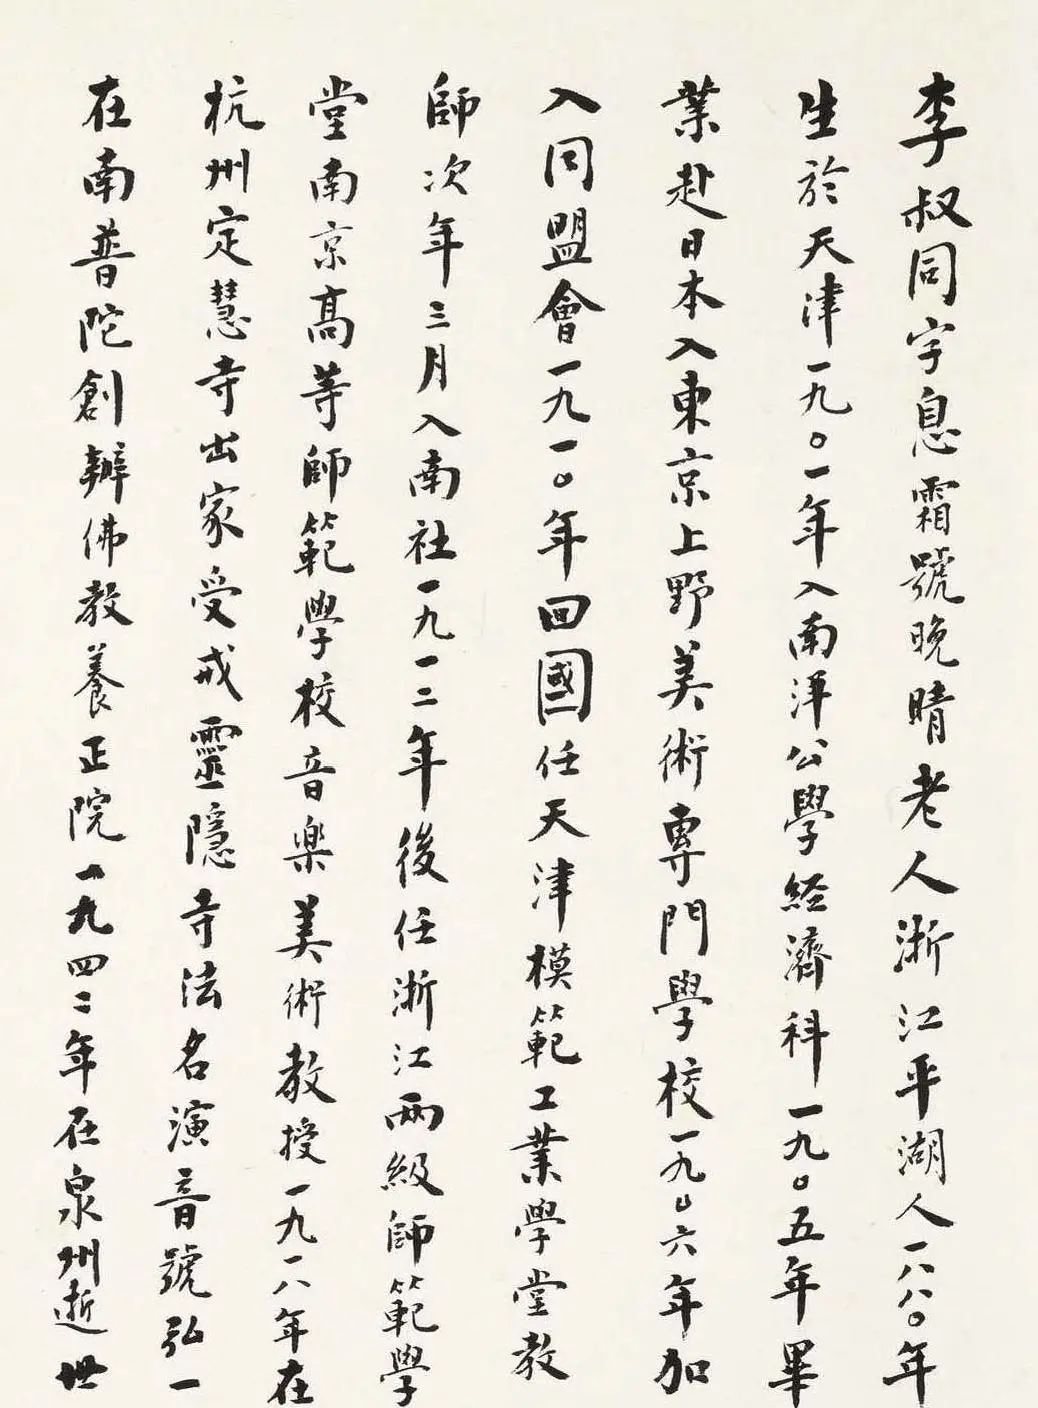 李叔同字息霜號晚晴老人浙江平湖人一八八〇年
生於天津一九〇一年入南洋公學經濟科一九〇五年畢
業赴日本入東京上野美術專門學校一九〇六年加
入同盟會一九一〇年回國任天津模範工業學堂教
師次年三月入南社一九一二年後任浙江兩級師範學
堂南京高等師範學校音樂美術教授一九一八年在
杭州定慧寺出家受戒靈隱寺法名演音號弘一
在南普陀創辦佛教養正院一九四二年在泉州逝世